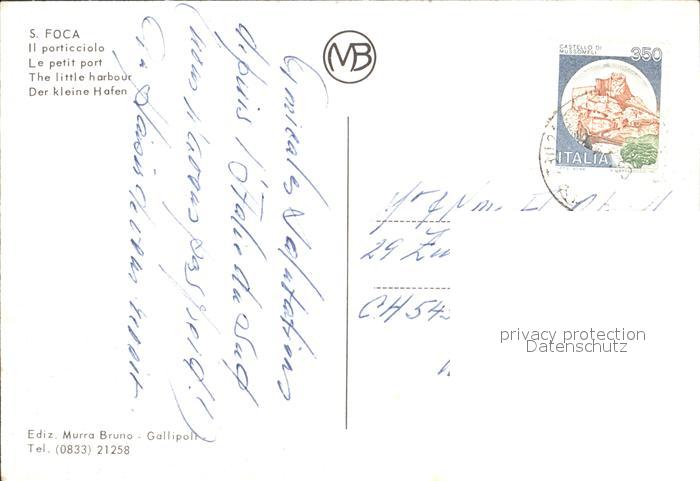 S. FOCA
Il porticciolo
Le petit port
The little harbour
Der kleine Hafen
MB
CASTELLO DI
MUSSOMELI
350
ITALIA
Amicales Salutations
depuis l'Italie du Sud
(nous n'avons pas froid!)
29
CH 543
privacy protection
Datenschutz
Ediz. Murra Bruno - Gallipoli
Tel. (0833) 21258